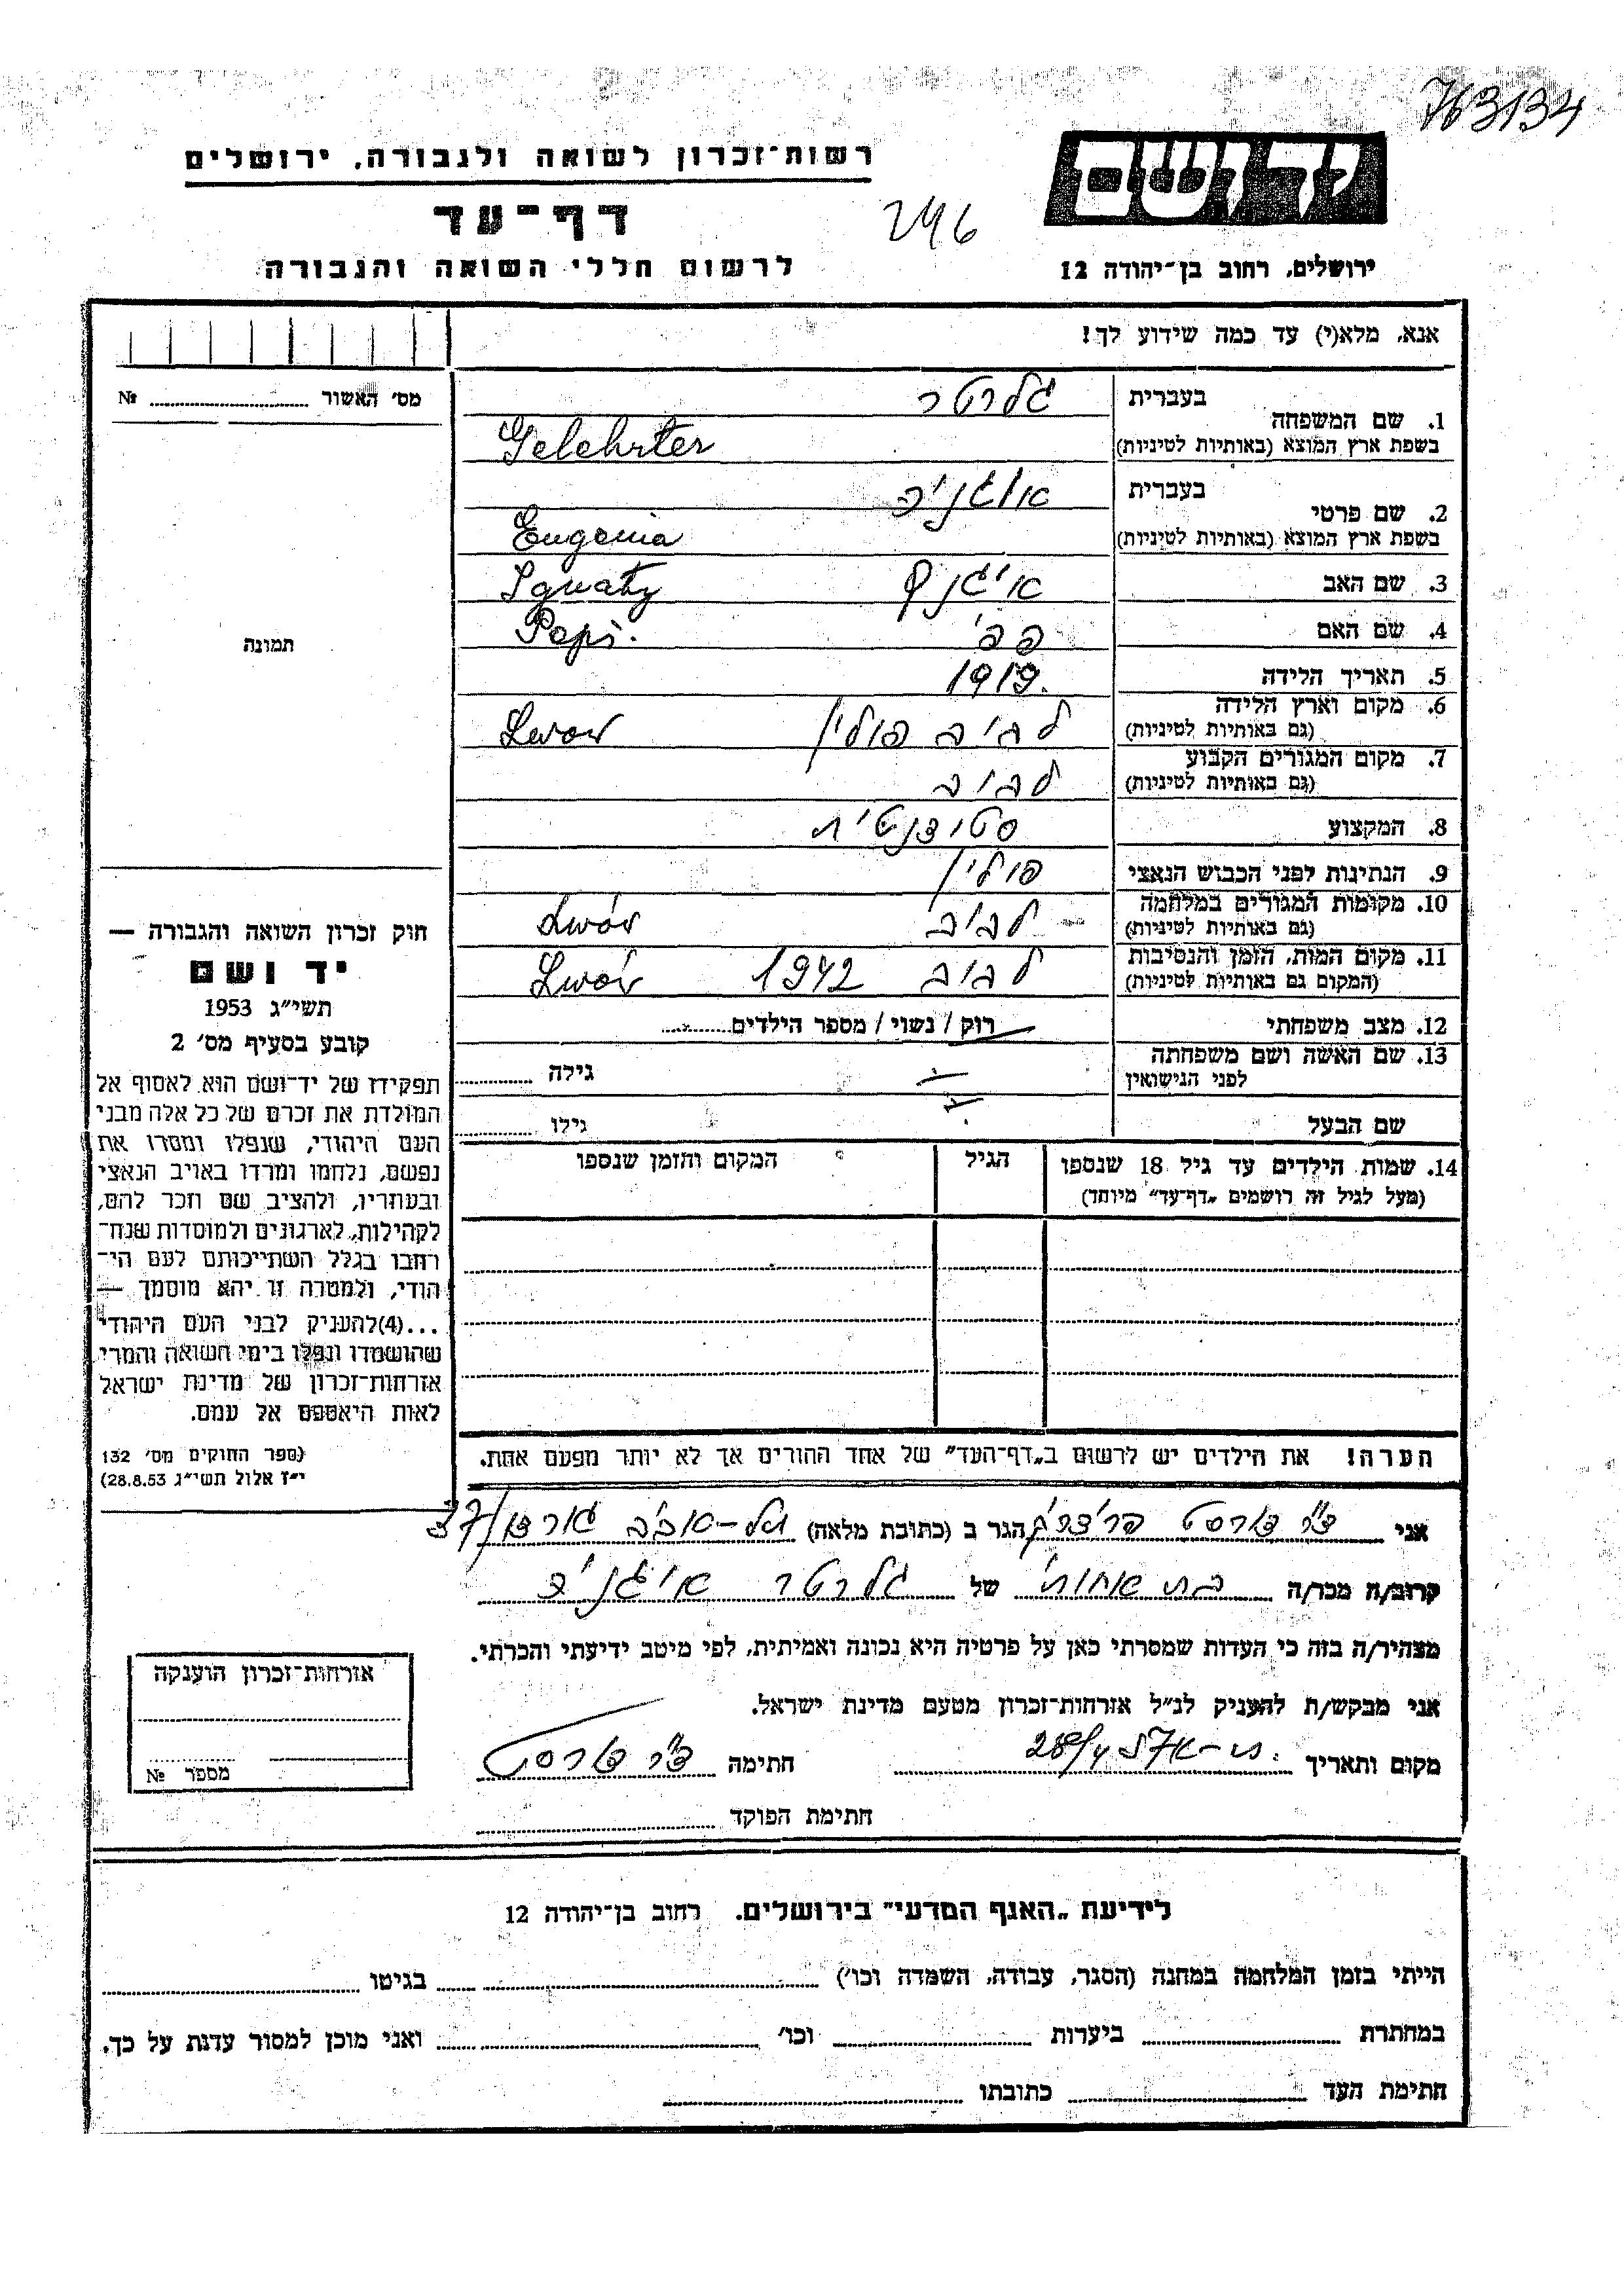 763134
רשות־זכרון לשואה ולגבורה, ירושלים
יד ושם
דף־עד
246
לרשום חללי השואה והגבורה
ירושלים, רחוב בן־יהודה 12
אנא, מלא(י) עד כמה שידוע לך!
מס׳ האשור № 
1. שם המשפחה
בעברית גלרטר
בשפת ארץ המוצא (באותיות לטיניות) Gelehrter
2. שם פרטי
בעברית אוגניה
בשפת ארץ המוצא (באותיות לטיניות) Eugenia
3. שם האב Ignatz
4. שם האם פפי Pepi.
5. תאריך הלידה 1919.
6. מקום וארץ הלידה לבוב פולין Lwow
(גם באותיות לטיניות)
7. מקום המגורים הקבוע לבוב
(גם באותיות לטיניות)
8. המקצוע סטודנטית
9. הנתינות לפני הכבוש הנאצי פולין
10. מקומות המגורים במלחמה לבוב Lwów
(גם באותיות לטיניות)
11. מקום המות, הזמן והנסיבות לבוב 1942 Lwów
(המקום גם באותיות לטיניות)
12. מצב משפחתי רוק / נשוי / מספר הילדים
13. שם האשה ושם משפחתה
לפני הנישואין גילה
שם הבעל גילו
14. שמות הילדים עד גיל 18 שנספו הגיל המקום והזמן שנספו
(מעל לגיל זה רושמים „דף־עד״ מיוחד)
הערה! את הילדים יש לרשום ב„דף־העד״ של אחד ההורים אך לא יותר מפעם אחת.
תמונה
חוק זכרון השואה והגבורה —
יד ושם
תשי״ג 1953
קובע בסעיף מס׳ 2
תפקידו של יד־ושם הוא לאסוף אל
המולדת את זכרם של כל אלה מבני
העם היהודי, שנפלו ומסרו את
נפשם, נלחמו ומרדו באויב הנאצי
ובעוזריו, ולהציב שם וזכר להם,
לקהילות, לארגונים ולמוסדות שנח־
רבו בגלל השתייכותם לעם הי־
הודי, ולמטרה זו יהא מוסמך —
...(4)להעניק לבני העם היהודי
שהושמדו ונפלו בימי השואה והמרי
אזרחות־זכרון של מדינת ישראל
לאות היאספם אל עמם.
(ספר החוקים מס׳ 132
י״ז אלול תשי״ג 28.8.53)
אני ד״ר הגר ב (כתובת מלאה) תל-אביב גורדון 37
קרוב/ה מכר/ה בת אחות של גלרטר אוגניה
מצהיר/ה בזה כי העדות שמסרתי כאן על פרטיה היא נכונה ואמיתית, לפי מיטב ידיעתי והכרתי.
אני מבקש/ת להעניק לנ״ל אזרחות־זכרון מטעם מדינת ישראל.
מקום ותאריך חתימה ד״ר
חתימת הפוקד
אזרחות־זכרון הוענקה
מספר №
לידיעת „האגף המדעי״ בירושלים, רחוב בן־יהודה 12
הייתי בזמן המלחמה במחנה (הסגר, עבודה, השמדה וכו׳) בגיטו
במחתרת ביערות וכו׳ ואני מוכן למסור עדות על כך.
חתימת העד כתובתו